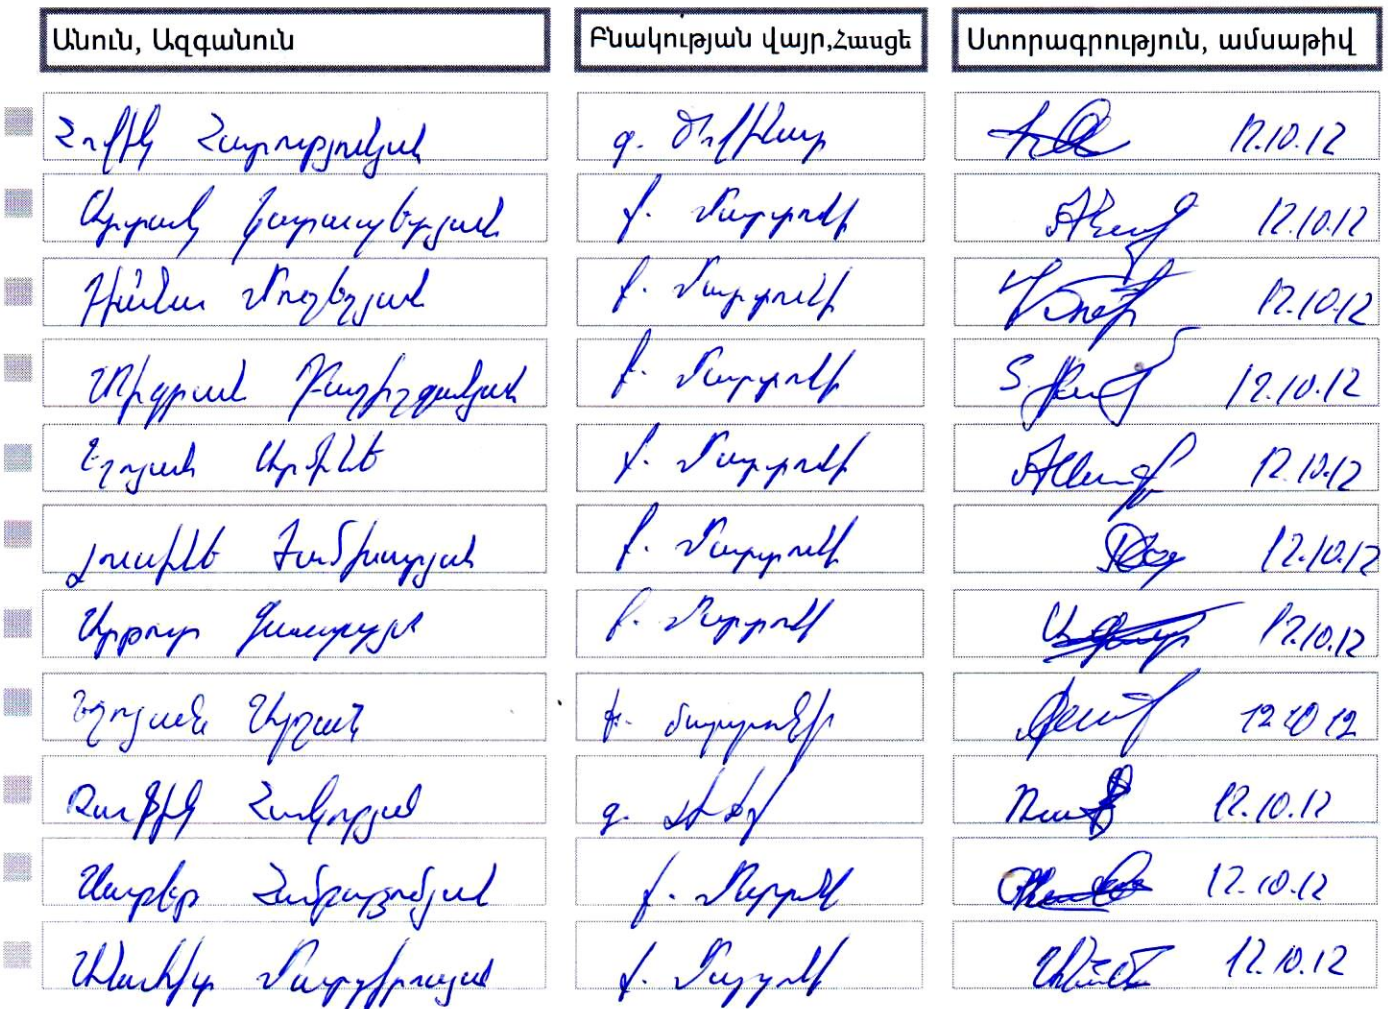 Անուն, Ազգանուն Բնակության վայր,Հասցե Ստորագրություն, ամսաթիվ
Հովիկ Հարությունյան գ. Ծովինար 12.10.12
Արտակ Կարապետյան ք. Մարտունի 12.10.12
Դիանա Մուշեղյան ք. Մարտունի 12.10.12
Տիգրան ք. Մարտունի 12.10.12
Եղոյան Արմինե ք. Մարտունի 12.10.12
Լուսինե ք. Մարտունի 12.10.12
Արթուր ք. Մարտունի 12.10.12
Եղոյան Արշակ ք. Մարտունի 12.10.12
Ռաֆիկ Հակոբյան գ. 12.10.12
Սարգիս Համբարձումյան ք. Մարտունի 12.10.12
Անահիտ Մարտիրոսյան ք. Մարտունի 12.10.12